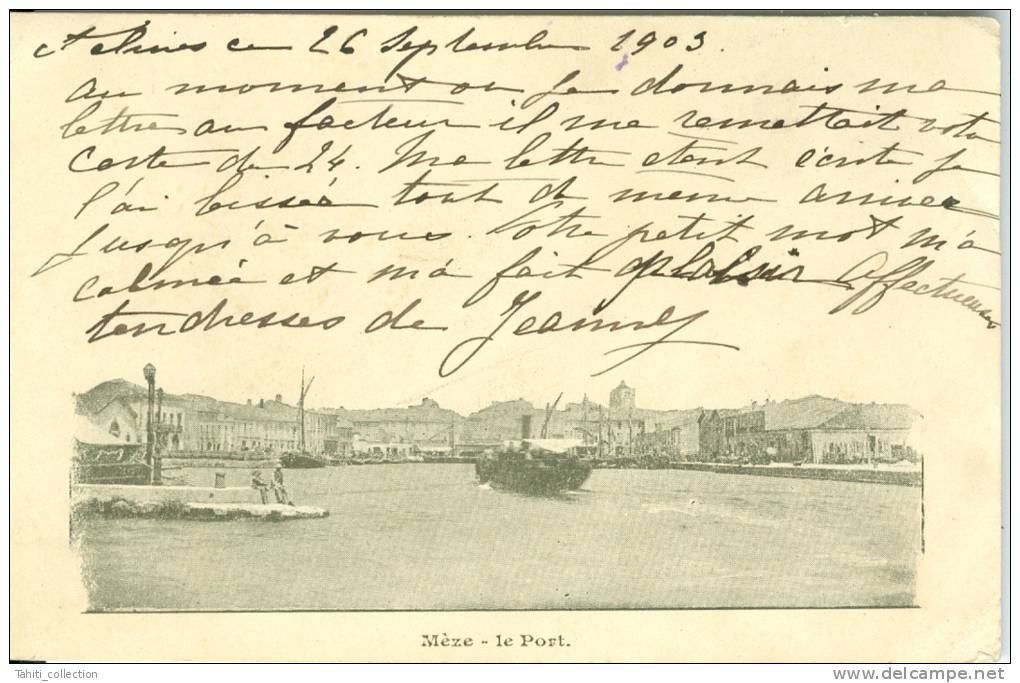 ce 26 Septembre 1903.
au moment ou je donnais ma
lettre au facteur il me remettait votre
carte du 24. Ma lettre etant écrite je
l'ai laissée tout de meme arriver
jusqu'à vous. Votre petit mot m'a
calmée et m'a fait plaisir Affectueuses
tendresses de Jeanne
Mèze - le Port.
Tahiti_collection
www.delcampe.net